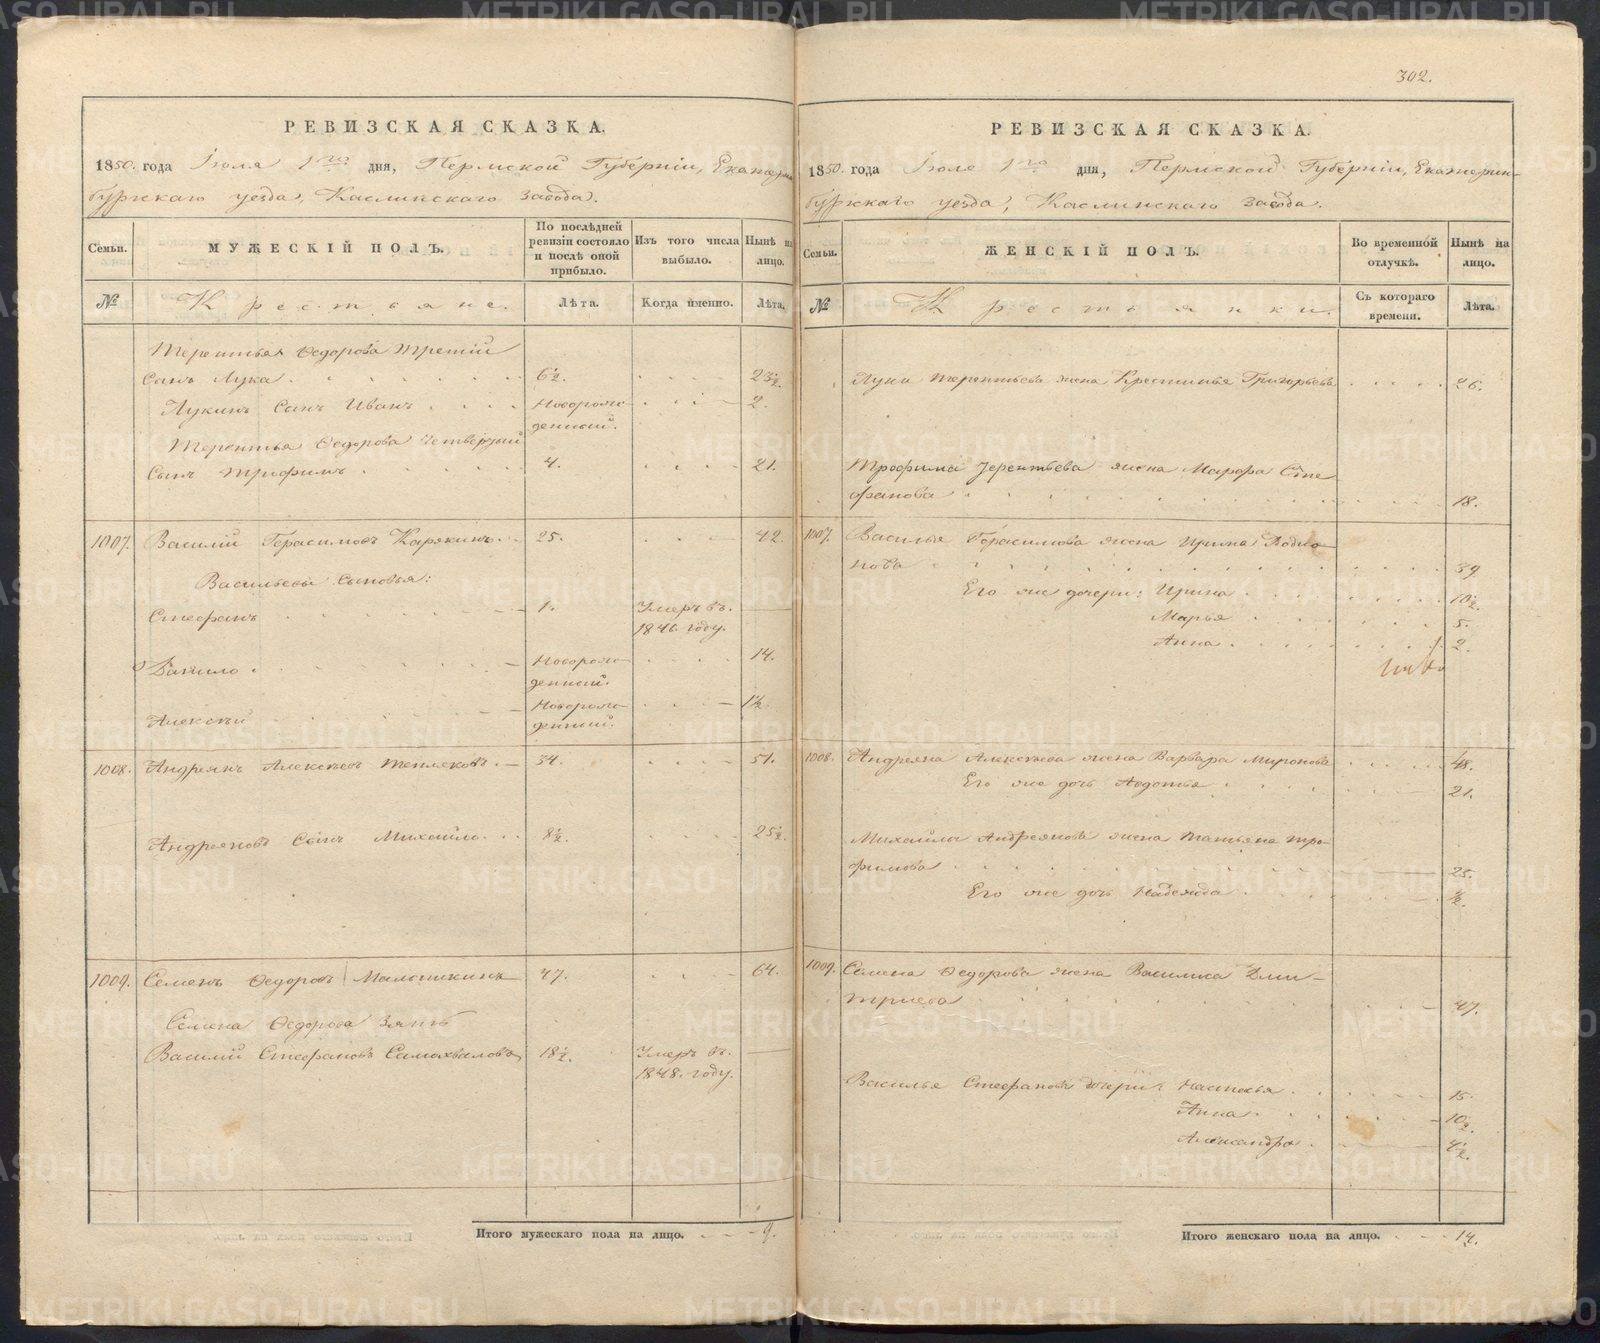 302.
РЕВИЗСКАЯ СКАЗКА.
1850. года Июля 1го дня, Пермской Губерніи, Екатерин-
бургскаго уезда, Каслинскаго завода.
Семьи.
МУЖЕСКІЙ ПОЛЪ.
По послѣдней ревизіи состояло и послѣ оной прибыло.
Изъ того числа выбыло.
Нынѣ на лицо.
№
Крестьяне.
Лѣта.
Когда именно.
Лѣта.
Терентья Ѳедорова третій
Сынъ Лука 6½. 23½.
Лукинъ Сынъ Иванъ Новорож- 2.
денный.
Терентья Ѳедорова четвертый
Сынъ Трофимъ 4. 21.
1007. Василій Герасимовъ Карякинъ 25. 42.
Васильевы Сыновья:
Стефанъ 1. Умеръ въ
1846. году.
Данило Новорож- 14.
денный.
Алексѣй Новорож- 1½.
денный.
1008. Андреянъ Алексѣевъ Тепляковъ 34. 51.
Андреяновъ Сынъ Михайло 8½. 25½.
1009. Семенъ Ѳедоровъ Малышкинъ 47. 64.
Семена Ѳедорова Зять
Василій Стефановъ Самохваловъ 18½. Умеръ въ
1848. году.
Итого мужескаго пола на лицо. 9.
РЕВИЗСКАЯ СКАЗКА.
1850. года Июля 1го дня, Пермской Губерніи, Екатерин-
бургскаго уезда, Каслинскаго завода.
Семьи.
ЖЕНСКІЙ ПОЛЪ.
Во временной отлучкѣ.
Нынѣ на лицо.
№
Крестьянки.
Съ котораго времени.
Лѣта.
Луки Терентьева жена Крестинья Григорьева 26.
Трофима Терентьева жена Марфа Сте-
фанова 18.
1007. Василья Герасимова жена Ирина Родио-
нова 39.
Его же дочери: Ирина 10½.
Марья 5.
Анна 2.
1008. Андреяна Алексѣева жена Варвара Миронова 48.
Его же дочь Авдотья 21.
Михайлы Андреянова жена Татьяна Тро-
фимова 25.
Его же дочь Надежда ½.
1009. Семена Ѳедорова жена Василиса Дми-
тріева 47.
Василья Стефанова дочери: Настасья 15.
Анна 10½.
Александра 4½.
Итого женскаго пола на лицо. 14.
METRIKI.GASO-URAL.RU